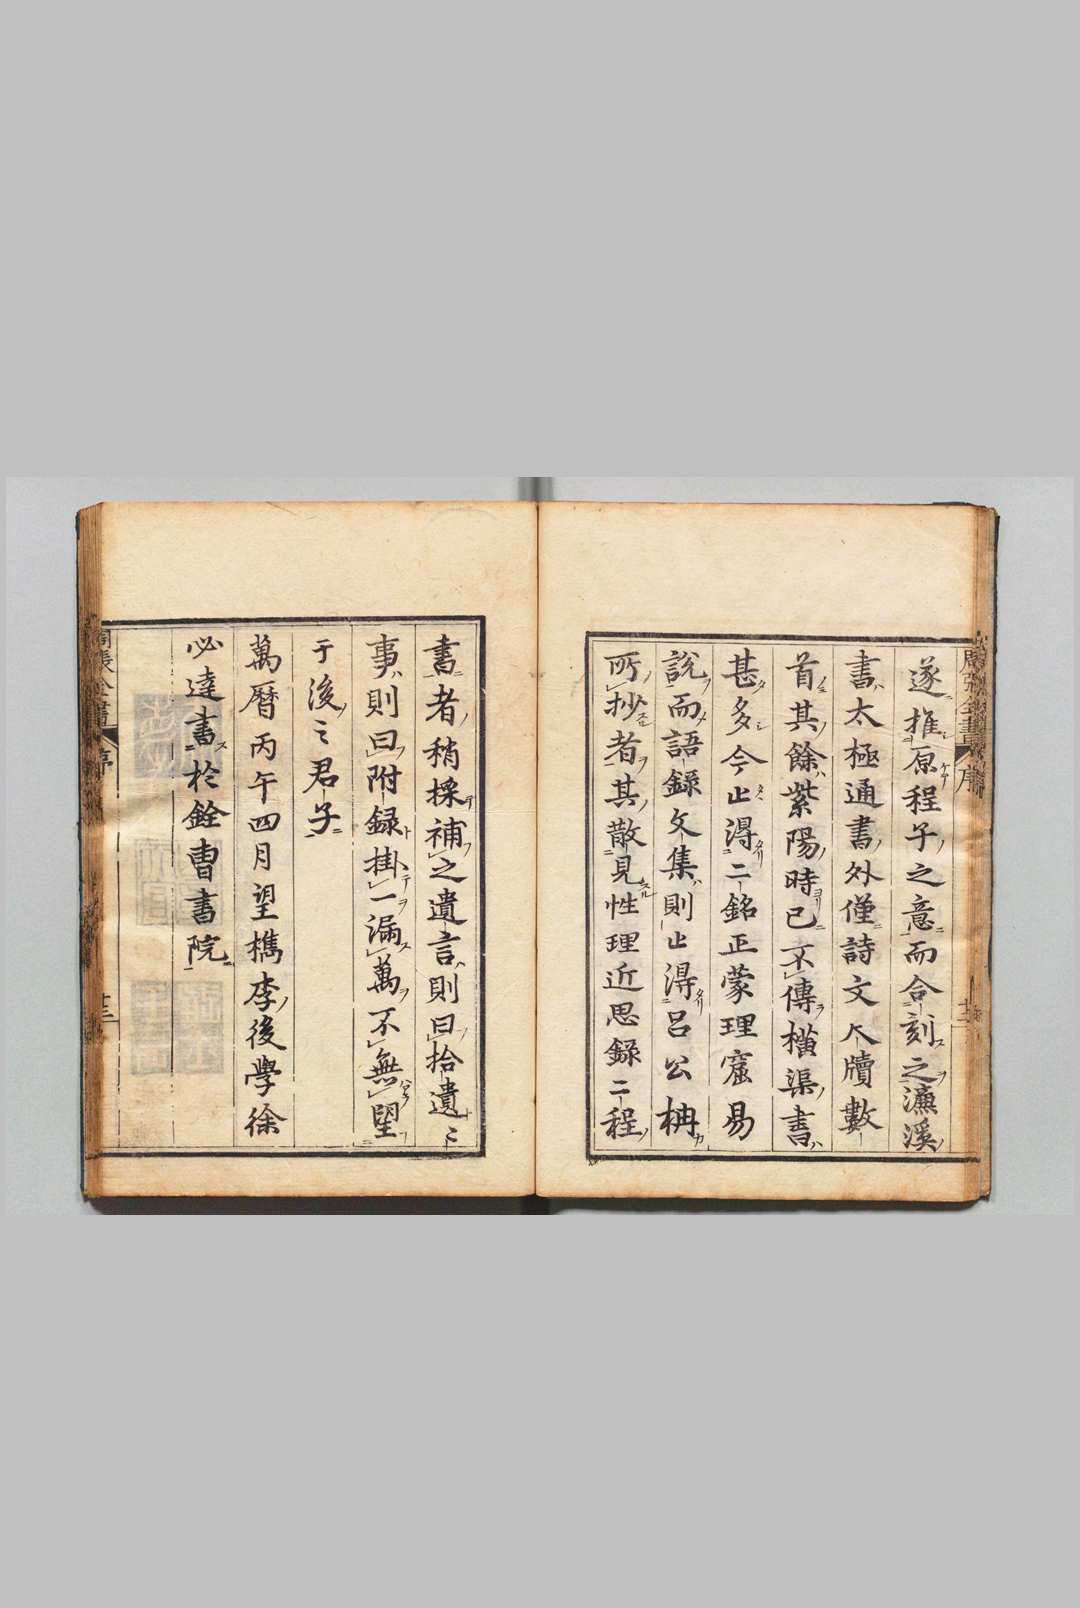 遂推原程子之意而合刻之濂溪
書太極通書外僅詩文尺牘數
首其餘紫陽時已不傳橫渠書
甚多今止得二銘正蒙理窟易
說而語錄文集則止得呂公柟
所抄者其散見性理近思錄二程
書者稍採補之遺言則曰拾遺〻
事則曰附録掛一漏萬不無望
于後之君子
萬曆丙午四月望檇李後學徐
必達書於銓曹書院
周張全書 序